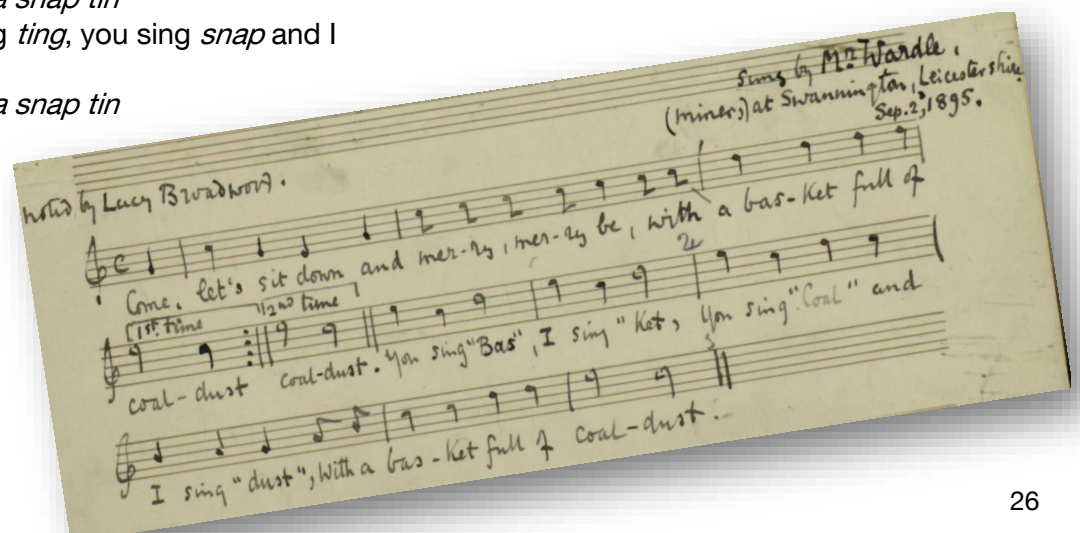 a snap tin
g ting, you sing snap and I
a snap tin
sung by Mr. Wardle.
(miner,) at Swannington, Leicestershire
Sep. 2, 1895.
noted by Lucy Broadwood.
Come, let's sit down and mer-ry, mer-ry be, with a bas-ket full of
1st time 2nd time
coal-dust coal-dust. You sing "Bas", I sing "Ket, You sing "Coal" and
I sing "dust", With a bas-ket full of coal-dust.
26